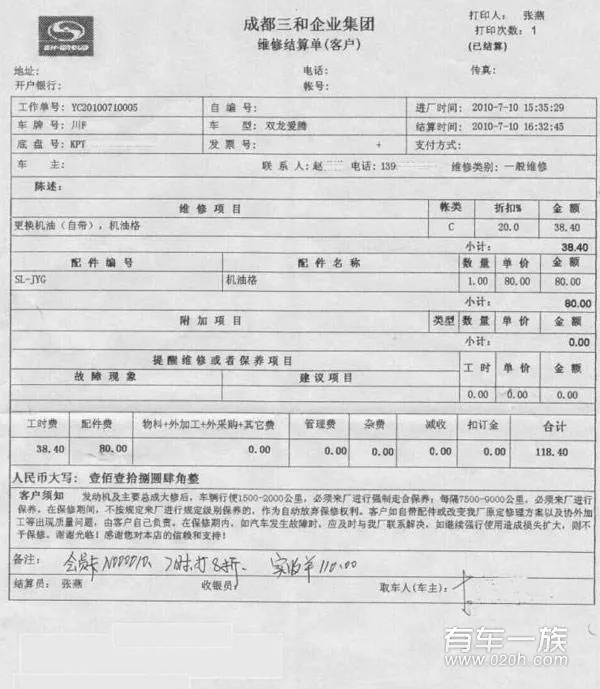 SH-GROUP
成都三和企业集团
维修结算单(客户)
打印人： 张燕
打印次数：1
(已结算)
地址： 电话： 传真：
开户银行： 帐号：
工作单号：YC20100710005 自编号： 进厂时间：2010-7-10 15:35:29
车牌号：川F 车 型：双龙爱腾 结算时间：2010-7-10 16:32:45
底盘号：KPT 发票号： + 支付方式：
车 主： 联系人：赵 电话：139 维修类别：一般维修
陈述：
维修项目 帐类 折扣% 金额
更换机油（自带），机油格 C 20.0 38.40
小计： 38.40
配件编号 配件名称 数量 单价 金额
SL-JYG 机油格 1.00 80.00 80.00
小计： 80.00
附加项目 类型 数量 单价 金额
小计： 0.00
提醒维修或者保养项目 工时 单价 金额
故障现象 建议项目
0.00 0.00 0.00
工时费 配件费 物料+外加工+外采购+其它费 管理费 杂费 减收 扣订金 合计
38.40 80.00 0.00 0.00 0.00 0.00 0.00 118.40
人民币大写： 壹佰壹拾捌圆肆角整
客户须知 发动机及主要总成大修后，车辆行使1500-2000公里，必须来厂进行强制走合保养；每隔7500-9000公里，必须来厂进行
保养。在保修期间，不按规定来厂进行规定级别保养的，作为自动放弃保修权利。客户如自带配件或改变我厂原定修理方案以及协外加
工等出现质量问题，由客户自己负责。在保修期内，如汽车发生故障时，应及时与我厂联系解决，如继续强行使用造成损失扩大，则不
予保修。谢谢光临！感谢您对本店的信赖和支持！
备注： 会员卡 打8折. 实收￥110.00
结算员： 张燕 收银员： 取车人(车主)：
有车一族
www.020h.com